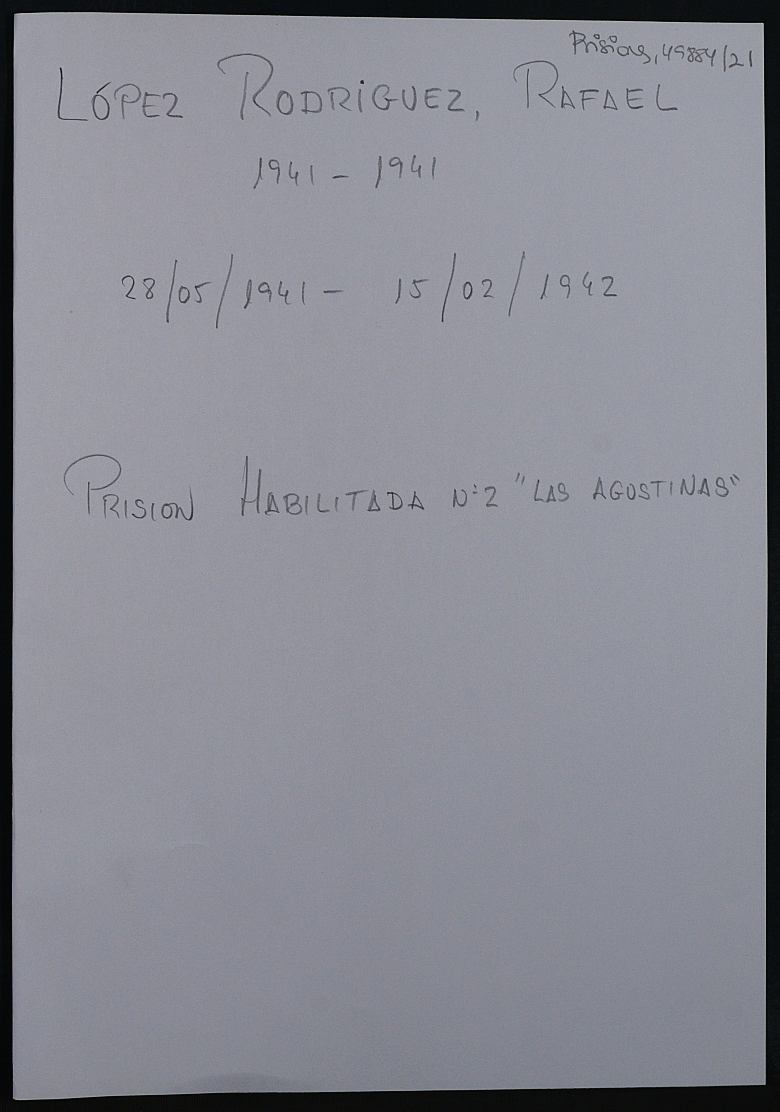 Prisiones, 49884/21
LÓPEZ RODRÍGUEZ, RAFAEL
1941 - 1941
28/05/1941 - 15/02/1942
PRISION HABILITADA Nº2 "LAS AGUSTINAS"